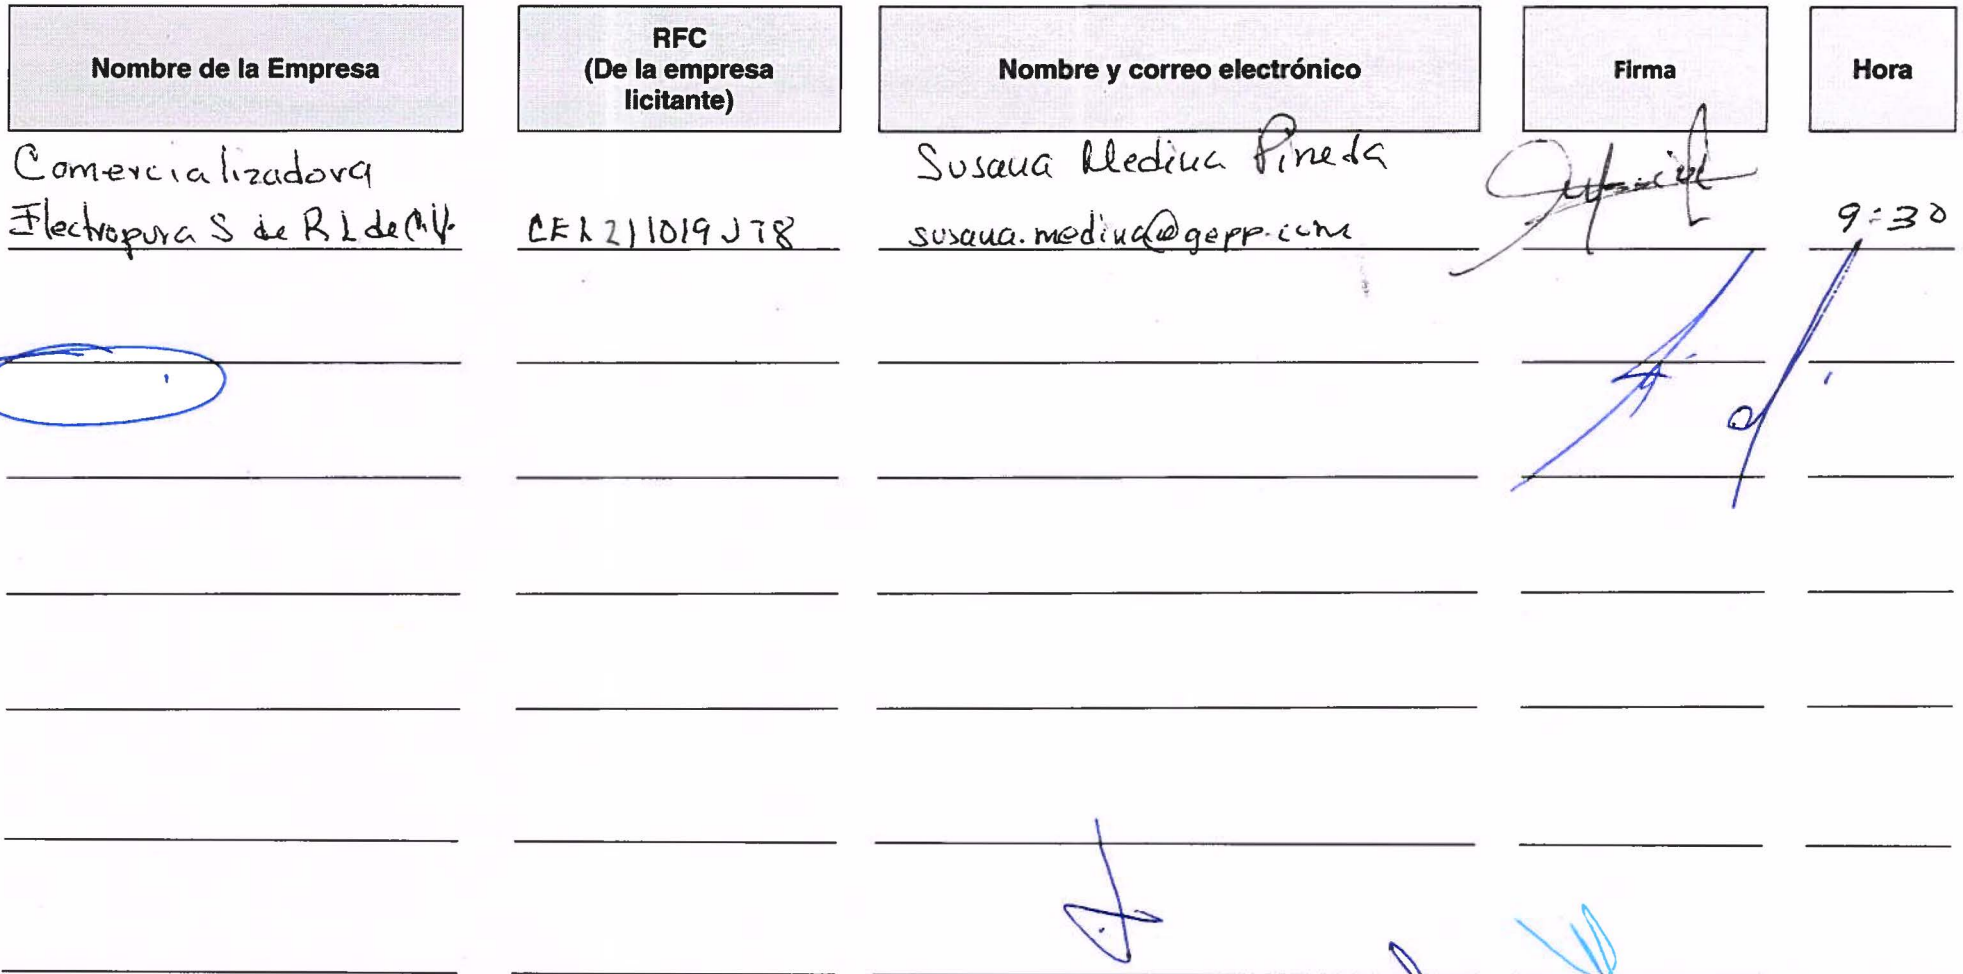 Nombre de la Empresa
RFC
(De la empresa
licitante)
Nombre y correo electrónico
Firma
Hora
Comercializadora
Electropura S de R L de C.V.
CEL211019JT8
Susana Medina Pineda
susana.medina@gepp.com
9:30